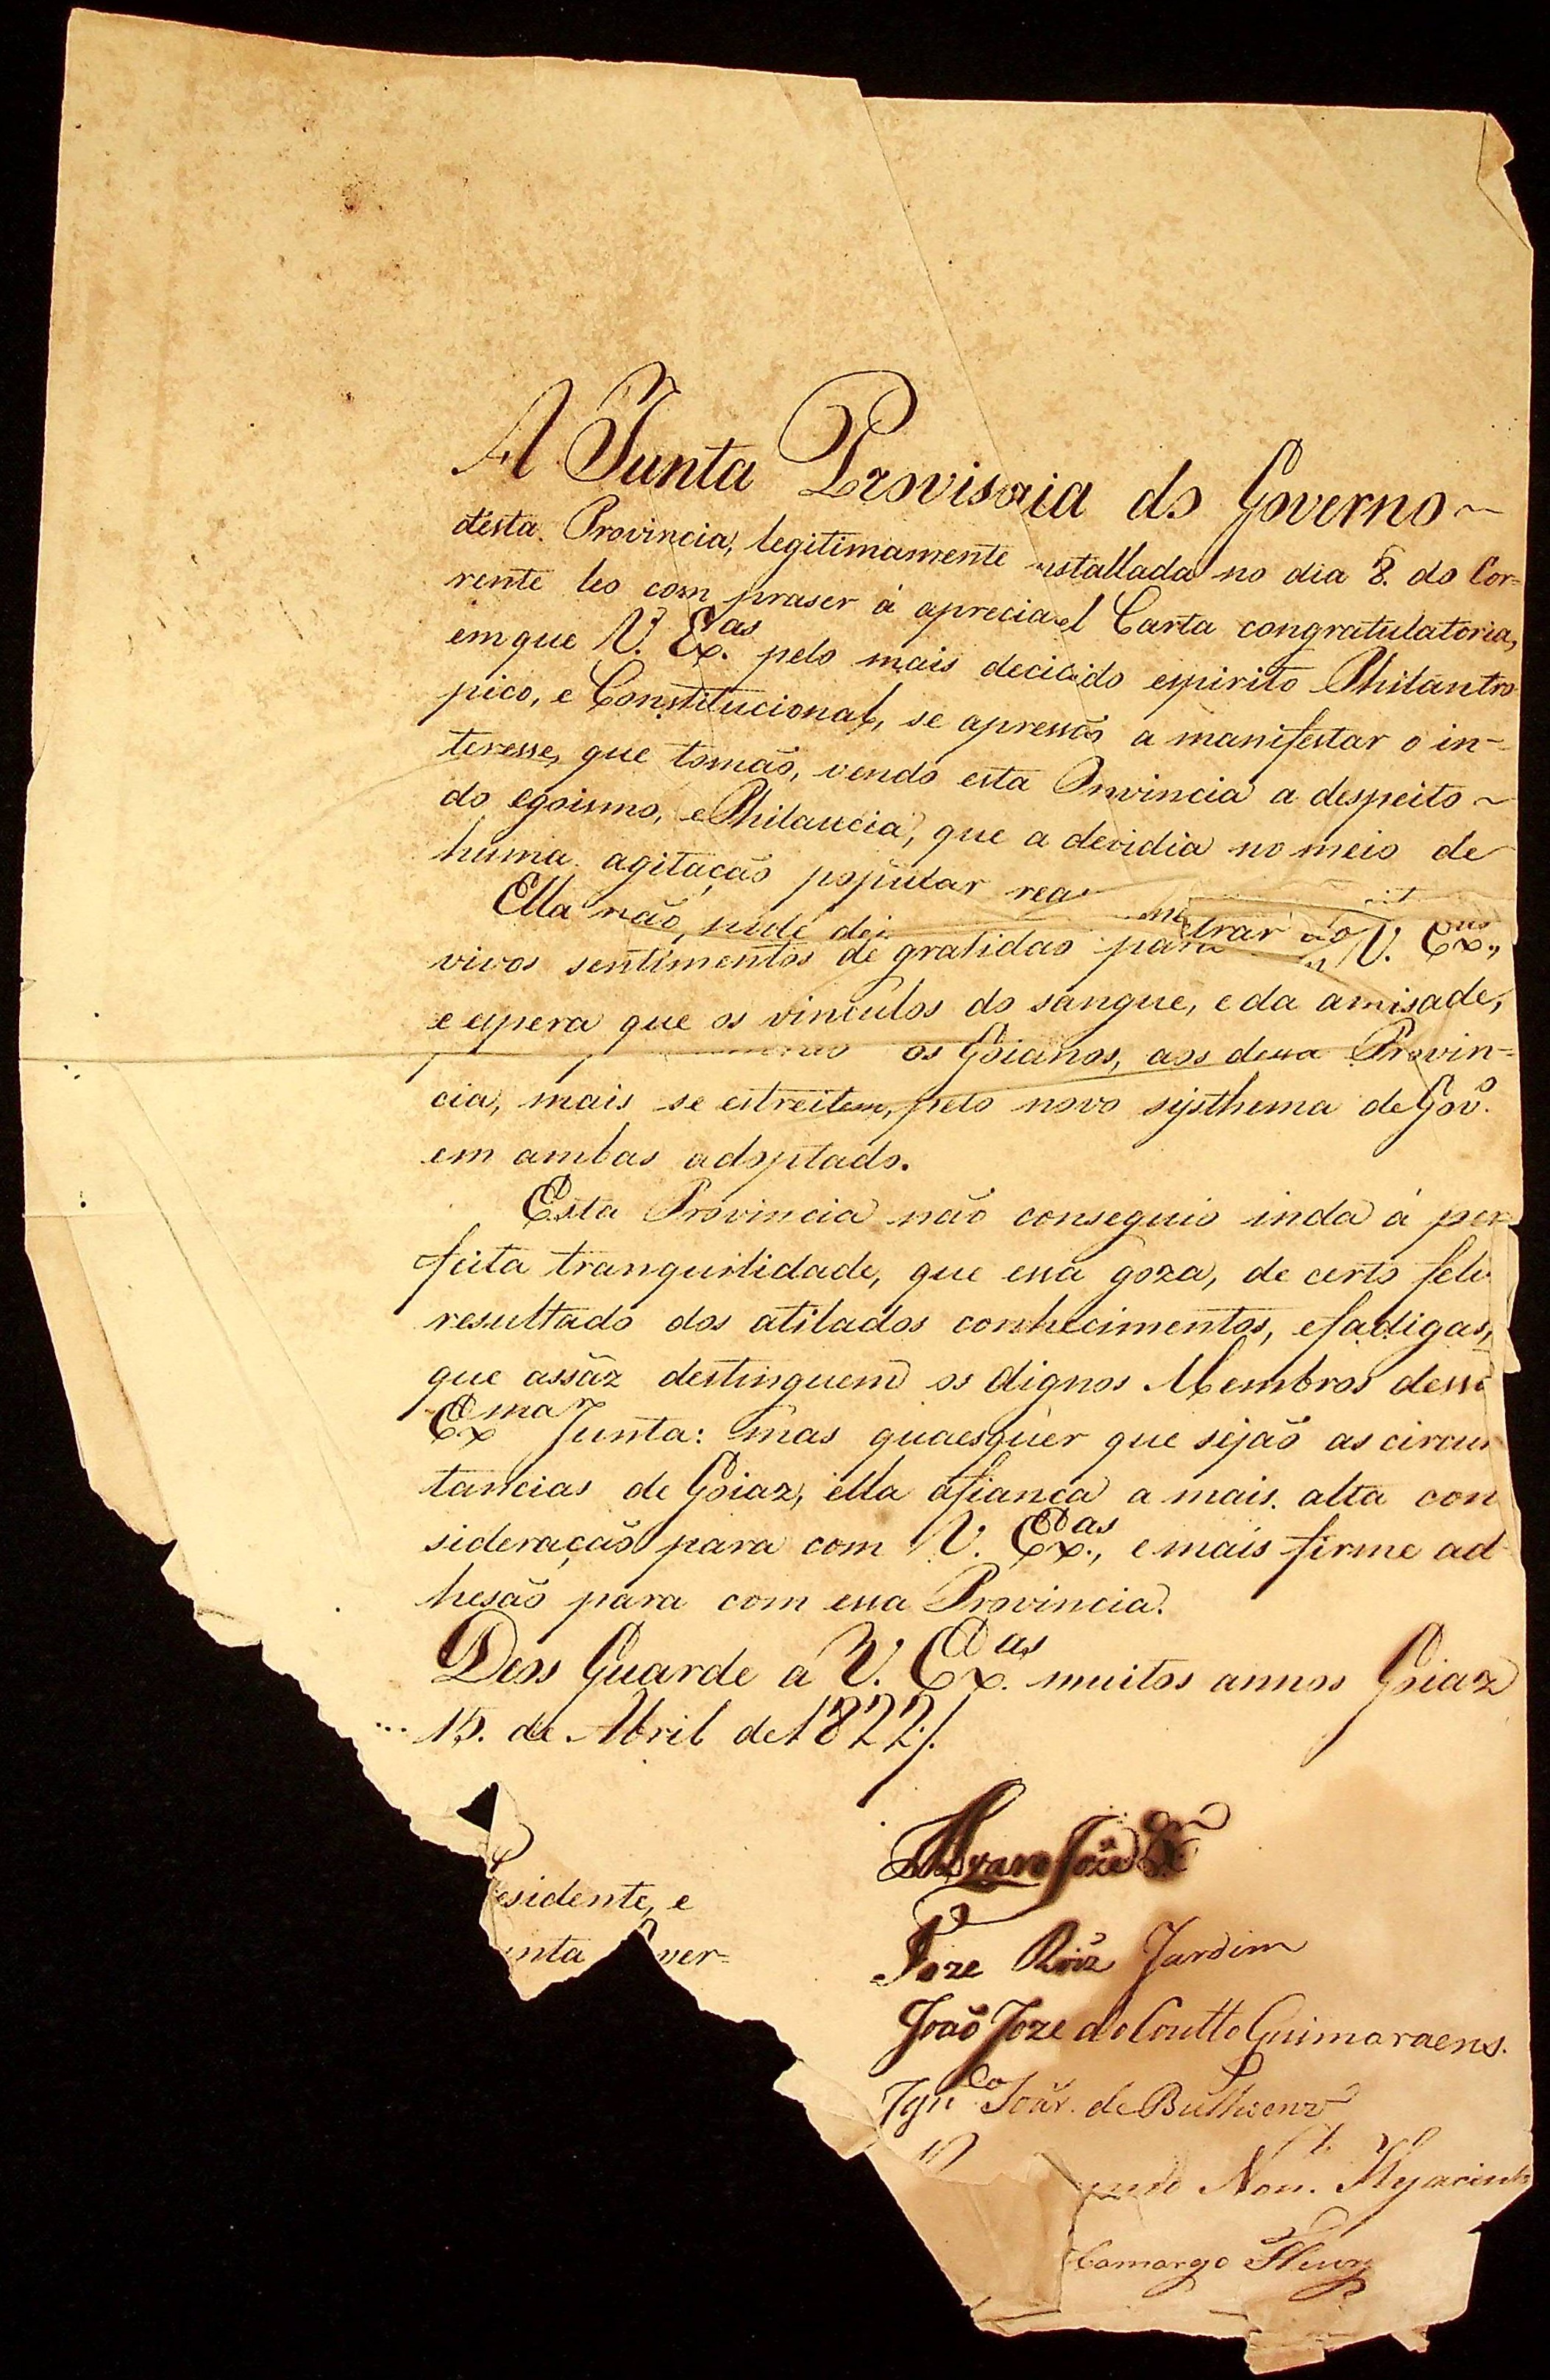 A Junta Provisoria do Governo ~
desta Provincia, legitimamente installada no dia 8. do Cor-
rente leo com praser á apreciavel Carta congratulatoria,
em que V. Ex.as pelo mais decidido espirito Philantro-
pico, e Constitucional, se apressão a manifestar o in-
teresse, que tomão, vendo esta Provincia a despeito ~
do egoismo, e Philaucia, que a devidia no meio de
huma agitação popular
Ella não pode trar ao
vivos sentimentos de gratidão para V. Ex.as,
e espera que os vinculos do sangue, e da amisade,
os Goianos, aos dessa Provin-
cia, mais se estreitem, pelo novo systhema de Gov.o
em ambas adoptado.
Esta Provincia não conseguio inda á per
feita tranquilidade, que essa goza, de certo feliz
resultado dos atilados conhecimentos, e fadigas,
que assáz destinguem os dignos Membros dessa
Ex.ma Junta: mas quaesquer que sejão as circuns
tancias de Goiaz, ella afiança a mais alta con
sideração para com V. Ex.as, e mais firme ad
hesão para com essa Provincia.
Deos Guarde a V. Ex.as muitos annos Goiaz
15. de Abril de 1822./.
Alvaro José X.er
esidente, e
unta ver=
Joze Roiz Jardim
João Joze do Coutto Guimaraens.
Ign.co Soar. de Bulhoens
undo Non.to Hyacinto
Camargo Fleury